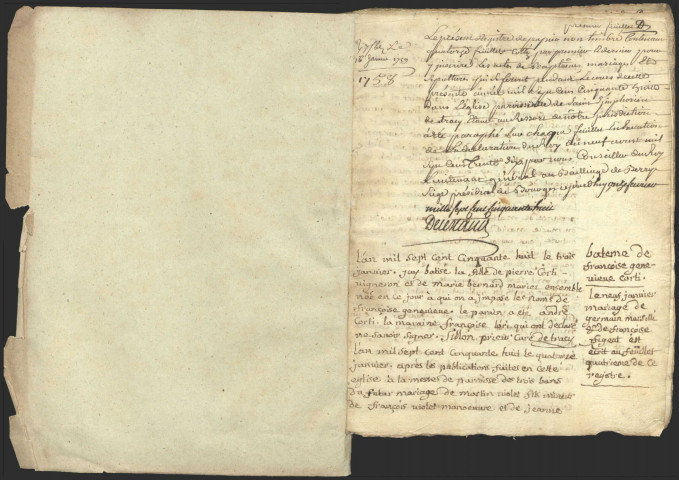 premier feuillet
Le présent registre de papier non timbré Contenant
quatorze feuillets Cottés par premier et dernier pour
y inscrire les actes de Baptêmes mariages Et
sepultures qui se feront pendant Le cours de cette
présente année mil sept cens Cinquante huit
dans L'église paroissialle de Saint Simphorien
de tracy Etant au Ressort de notre jurisdiction
a été paraphé Sur Chaque feuillet En Execution
de la declaration du Roy du neuf avril mil
sept cens trente six par nous Conseiller du Roy
Lieutenant général au Bailliage de Berry
siege présidial de Bourges ce jourd'huy onze
mille sept cens cinquante huit
1758
Lan mil sept cent Cinquante huit le trois
janvier. jay batisé la fille de pierre Corti
vigneron et de marie bernard mariez ensemble
née en ce jour à qui on a imposé les nom de
françoise genevieve. le parain a eté andré
Corti. la maraine françoise qui ont declaré
ne savoir signer. Sillon prieur Curé de tracy
Lan mil sept cent Cinquante huit le quatorze
janvier, après les publications faites en cette
eglise à la messe de paroisse de trois bans
du futur mariage de martin violet fils mineur
de françois violet manoeuvre et de jeanne
bateme de
françoise gene-
vieve Corti.
Le neuf janvier
mariage de
germain
et de françoise
pigeat est
ecrit au feüillet
quatrieme de ce
registre.